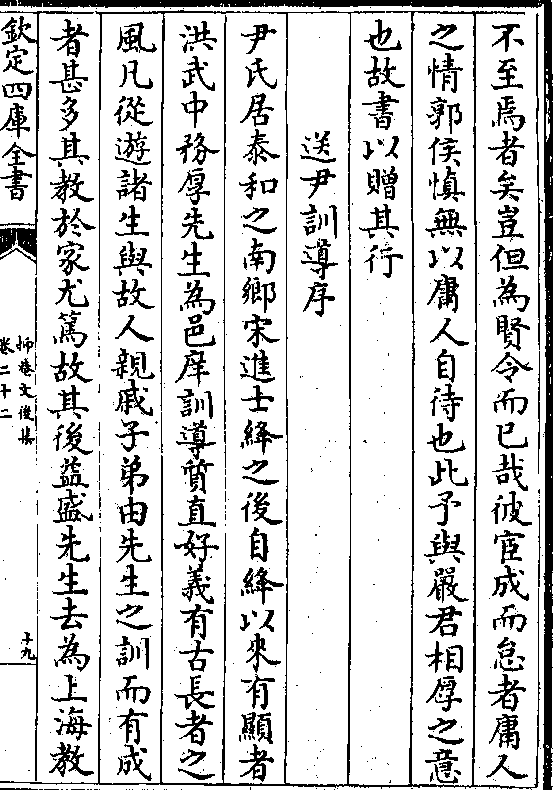 不至焉者矣豈但為賢令而已哉彼宦成而怠者庸人
之情郭侯慎無以庸人自待也此予與嚴君相厚之意
也故書以贈其行
送尹訓導序
尹氏居泰和之南鄉宋進士絳之後自絳以來有顯者
洪武中務厚先生為邑庠訓導質直好義有古長者之
風凡從遊諸生與故人親戚子弟由先生之訓而有成
者甚多其教於家尤篤故其後益盛先生去為上海教
欽定四庫全書
抑菴文後集
卷二十二
十九